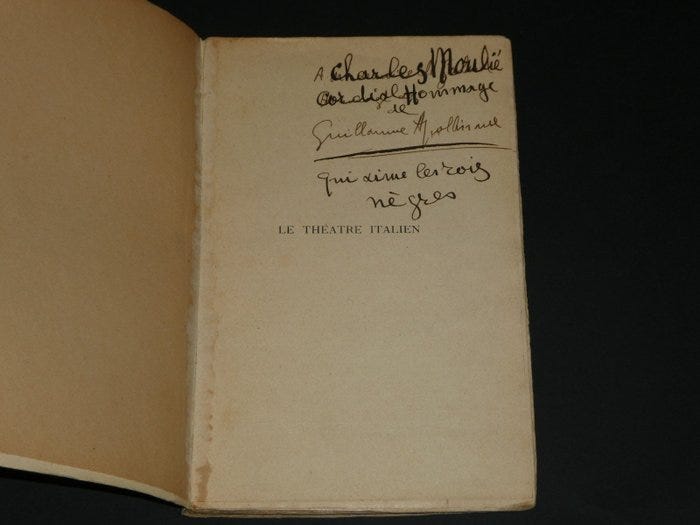 A Charles Moulié
Cordial Hommage
de
Guillaume Apollinaire
qui aime les rois
nègres
LE THÉATRE ITALIEN